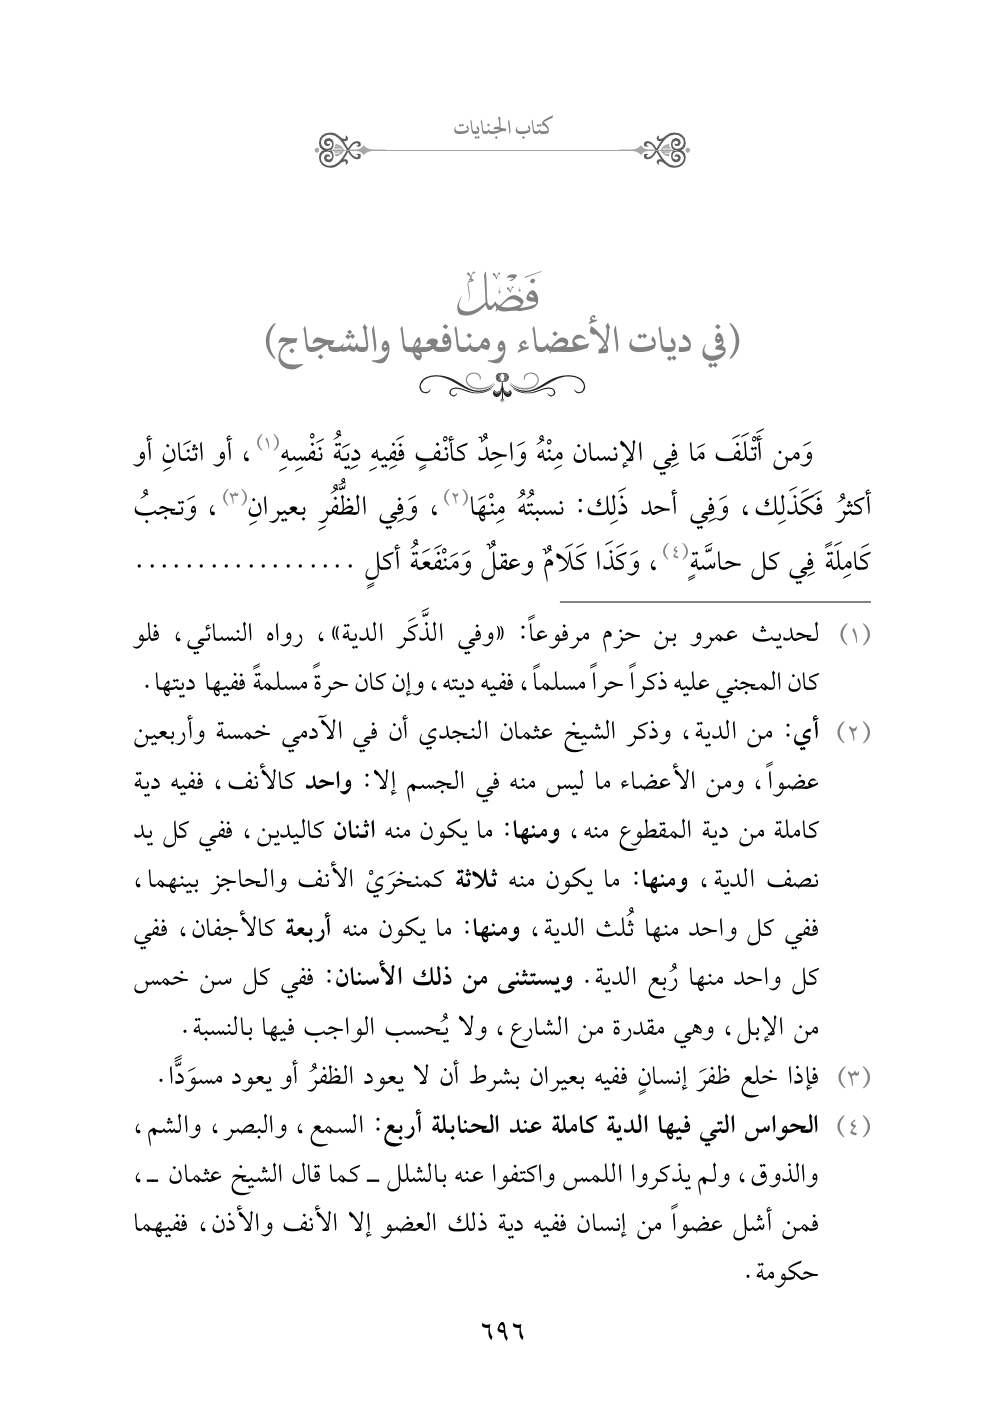 كتاب الجنايات
فَصْلٌ
(في ديات الأعضاء ومنافعها والشجاج)
وَمن أَتْلَفَ مَا فِي الإنسان مِنْهُ وَاحِدٌ كأنْفٍ فَفِيهِ دِيَةُ نَفْسِهِ(١)، أو اثنَانِ أو
أكثرُ فَكَذَلِك، وَفِي أحد ذَلِك: نسبتُهُ مِنْهَا(٢)، وَفِي الظُّفُرِ بعيرانِ(٣)، وَتجبُ
كَامِلَةً فِي كل حاسَّةٍ(٤)، وَكَذَا كَلَامٌ وعقلٌ وَمَنْفَعَةُ أكلٍ ..................
(١) لحديث عمرو بن حزم مرفوعاً: «وفي الذَّكَر الدية»، رواه النسائي، فلو
كان المجني عليه ذكراً حراً مسلماً، ففيه ديته، وإن كان حرةً مسلمةً ففيها ديتها.
(٢) أي: من الدية، وذكر الشيخ عثمان النجدي أن في الآدمي خمسة وأربعين
عضواً، ومن الأعضاء ما ليس منه في الجسم إلا: واحد كالأنف، ففيه دية
كاملة من دية المقطوع منه، ومنها: ما يكون منه اثنان كاليدين، ففي كل يد
نصف الدية، ومنها: ما يكون منه ثلاثة كمنخرَيْ الأنف والحاجز بينهما،
ففي كل واحد منها ثُلث الدية، ومنها: ما يكون منه أربعة كالأجفان، ففي
كل واحد منها رُبع الدية. ويستثنى من ذلك الأسنان: ففي كل سن خمس
من الإبل، وهي مقدرة من الشارع، ولا يُحسب الواجب فيها بالنسبة.
(٣) فإذا خلع ظفرَ إنسانٍ ففيه بعيران بشرط أن لا يعود الظفرُ أو يعود مسوَدًّا.
(٤) الحواس التي فيها الدية كاملة عند الحنابلة أربع: السمع، والبصر، والشم،
والذوق، ولم يذكروا اللمس واكتفوا عنه بالشلل ـ كما قال الشيخ عثمان ـ،
فمن أشل عضواً من إنسان ففيه دية ذلك العضو إلا الأنف والأذن، ففيهما
حكومة.
٦٩٦